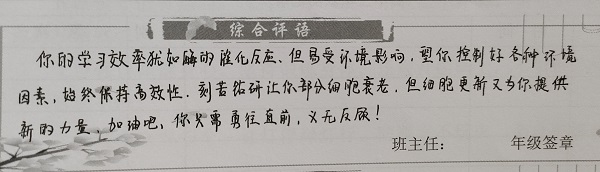 综合评语
你的学习效率犹如酶的催化反应，但易受环境影响，望你控制好各种环境
因素，始终保持高效性．刻苦钻研让你部分细胞衰老，但细胞更新又为你提供
新的力量，加油吧，你只需勇往直前，义无反顾！
班主任： 年级签章